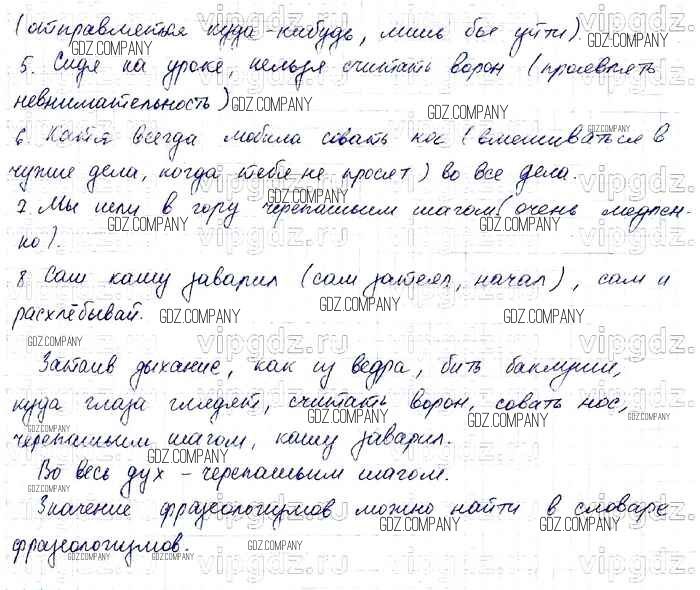 (отправляется куда-нибудь, лишь бы уйти).
5. Сидя на уроке, нельзя считать ворон (проявлять
невнимательность)
6. Катя всегда любила совать нос (вмешиваться в
чужие дела, когда тебя не просят) во все дела.
7. Мы шли в гору черепашьим шагом (очень медлен-
но).
8 Сам кашу заварил (сам затеял, начал), сам и
расхлёбывай.
Затаив дыхание, как из ведра, бить баклуши,
куда глаза глядят, считать ворон, совать нос,
черепашьим шагом, кашу заварил.
Во весь дух – черепашьим шагом.
Значение фразеологизмов можно найти в словаре
фразеологизмов.
GDZ.COMPANY
vipgdz.ru